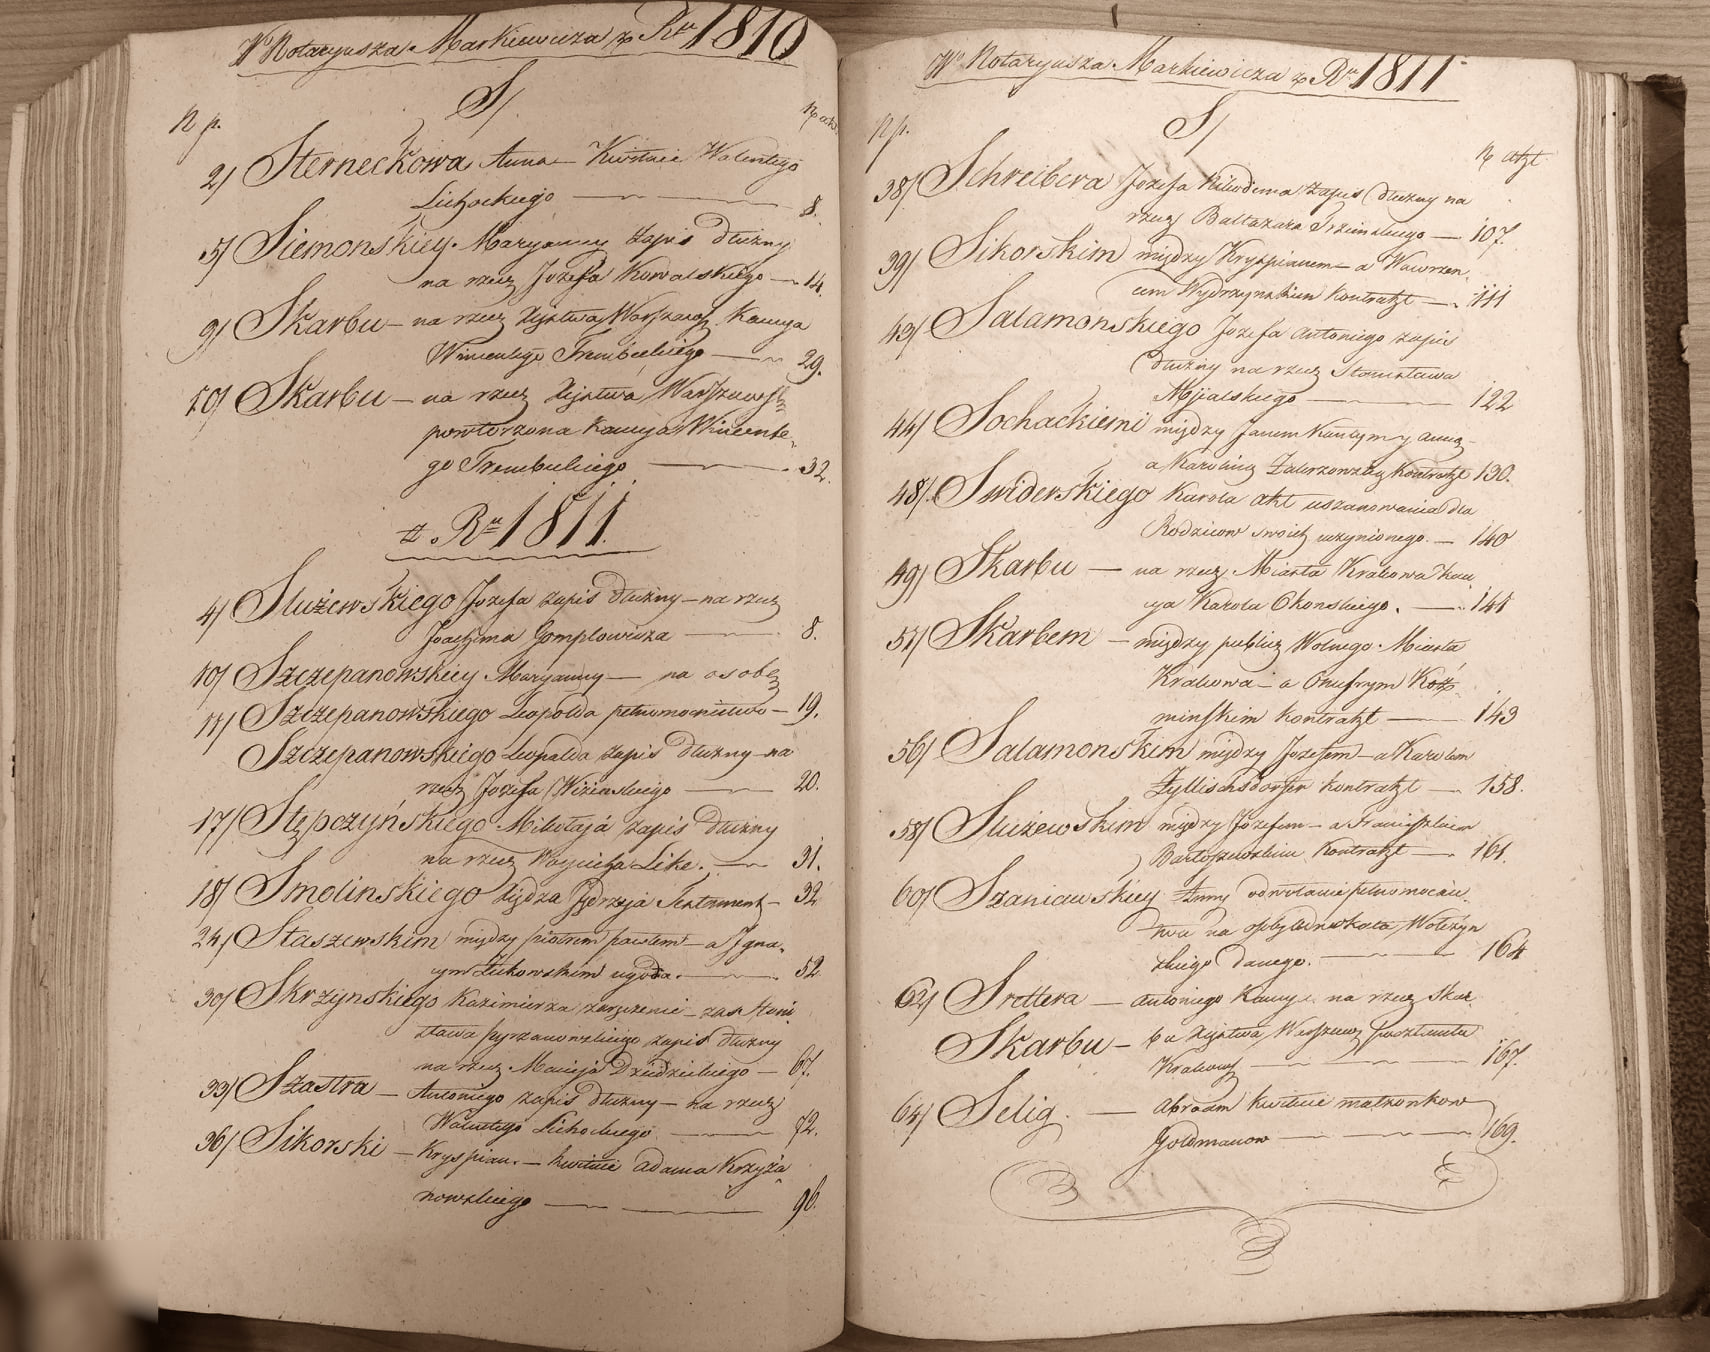 Wo Notaryusza Markiewicza z Ru 1810
S/
N p.
2/ Sterneckowa Anna Kwituie Walentego
Lichockiego 8.
5/ Siemonskiey Maryanny zapis dłużny
na rzecz Jozefa Kowalskiego 14.
9/ Skarbu na rzecz Xięstwa Warszaws. Kaucya
Wincentego Trembeckiego 29.
10/ Skarbu na rzecz Xięstwa Warszawsk
powtorzona kaucya Wincente
go Trembeckiego 32.
z Ru 1811.
4/ Służewskiego Jozefa zapis dłużny na rzecz
Joachima Gomplowicza 8.
10/ Szczepanowskiey Maryanny na osobę
11/ Szczepanowskiego Leopolda pełnomocnictwo 19.
Szczepanowskiego Leopolda zapis dłużny na
rzecz Jozefa 20.
17/ Stępczyńskiego Mikołaja zapis dłużny
na rzecz Woyciecha Like. 31.
18/ Smolinskiego Xiędza Jędrzeja Testament 32
24/ Staszewskim między piotrem pawłem a Igna
cym Żukowskim ugoda. 52
30/ Skrzynskiego Kazimierza zaś Stani
sława zapis dłużny
na rzecz Macieja Dzidzickiego 67.
33/ Szastra Antoniego zapis dłużny na rzecz
Walentego Lichockiego 72.
36/ Sikorski Kryspian kwituie adama Krzyża
nowskiego 96.
Wo Notaryusza Markiewicza z Ru 1811
S/
N p. N akt.
38/ Schreibera Jozefa zapis dłużny na
rzecz Baltazara 107.
39/ Sikorskim między Kryspianem a Wawrzeń
cem Wydrzynskim kontrakt 111
43/ Salamonskiego Jozefa Antoniego zapis
dłużny na rzecz Stanisława
122
44/ Sochackiemi między Janem Kantym y anną
a Karoliną kontrakt 130.
48/ Swiderskiego Karola akt uszanowania dla
Rodzicow swoich uczynionego 140
49/ Skarbu na rzecz Miasta Krakowa kau
cya Karola Okonskiego. 141
51/ Skarbem między public Wolnego Miasta
Krakowa a Onufrym Koź
minskim kontrakt 143
56/ Salamonskim między Jozefem a Karolem
kontrakt 158.
58/ Służewskim między Jozefem a Franciszkiem
Bartoszewskim kontrakt 161.
60/ Szaniawskiey Anny odwołanie pełnomocnic
twa na
danego. 164
62/ Srettera antoniego Kaucya na rzecz Skar
Skarbu bu Xięstwa Warszaws.
Krakows. 167.
64/ Selig. Abraam kwituie małżonkow
Goldmanow 169.